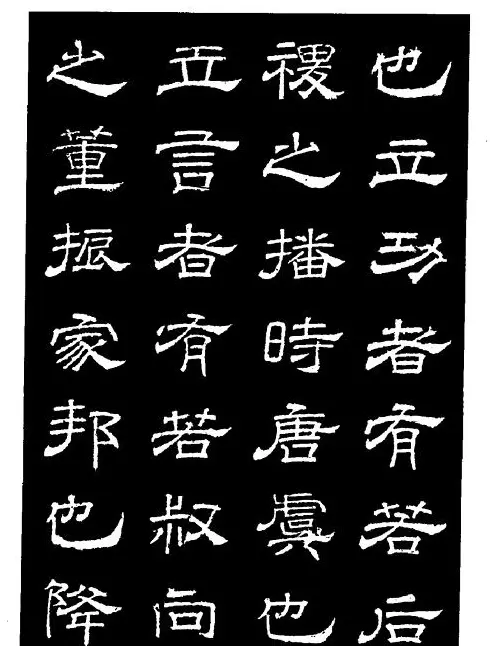 也立功者有若后
稷之播時唐虞也
立言者有若叔向
之董振家邦也降